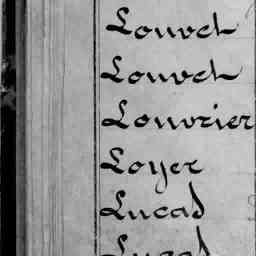 Louvet
Louvet
Louvrier
Loyer
Lucas
Lucas